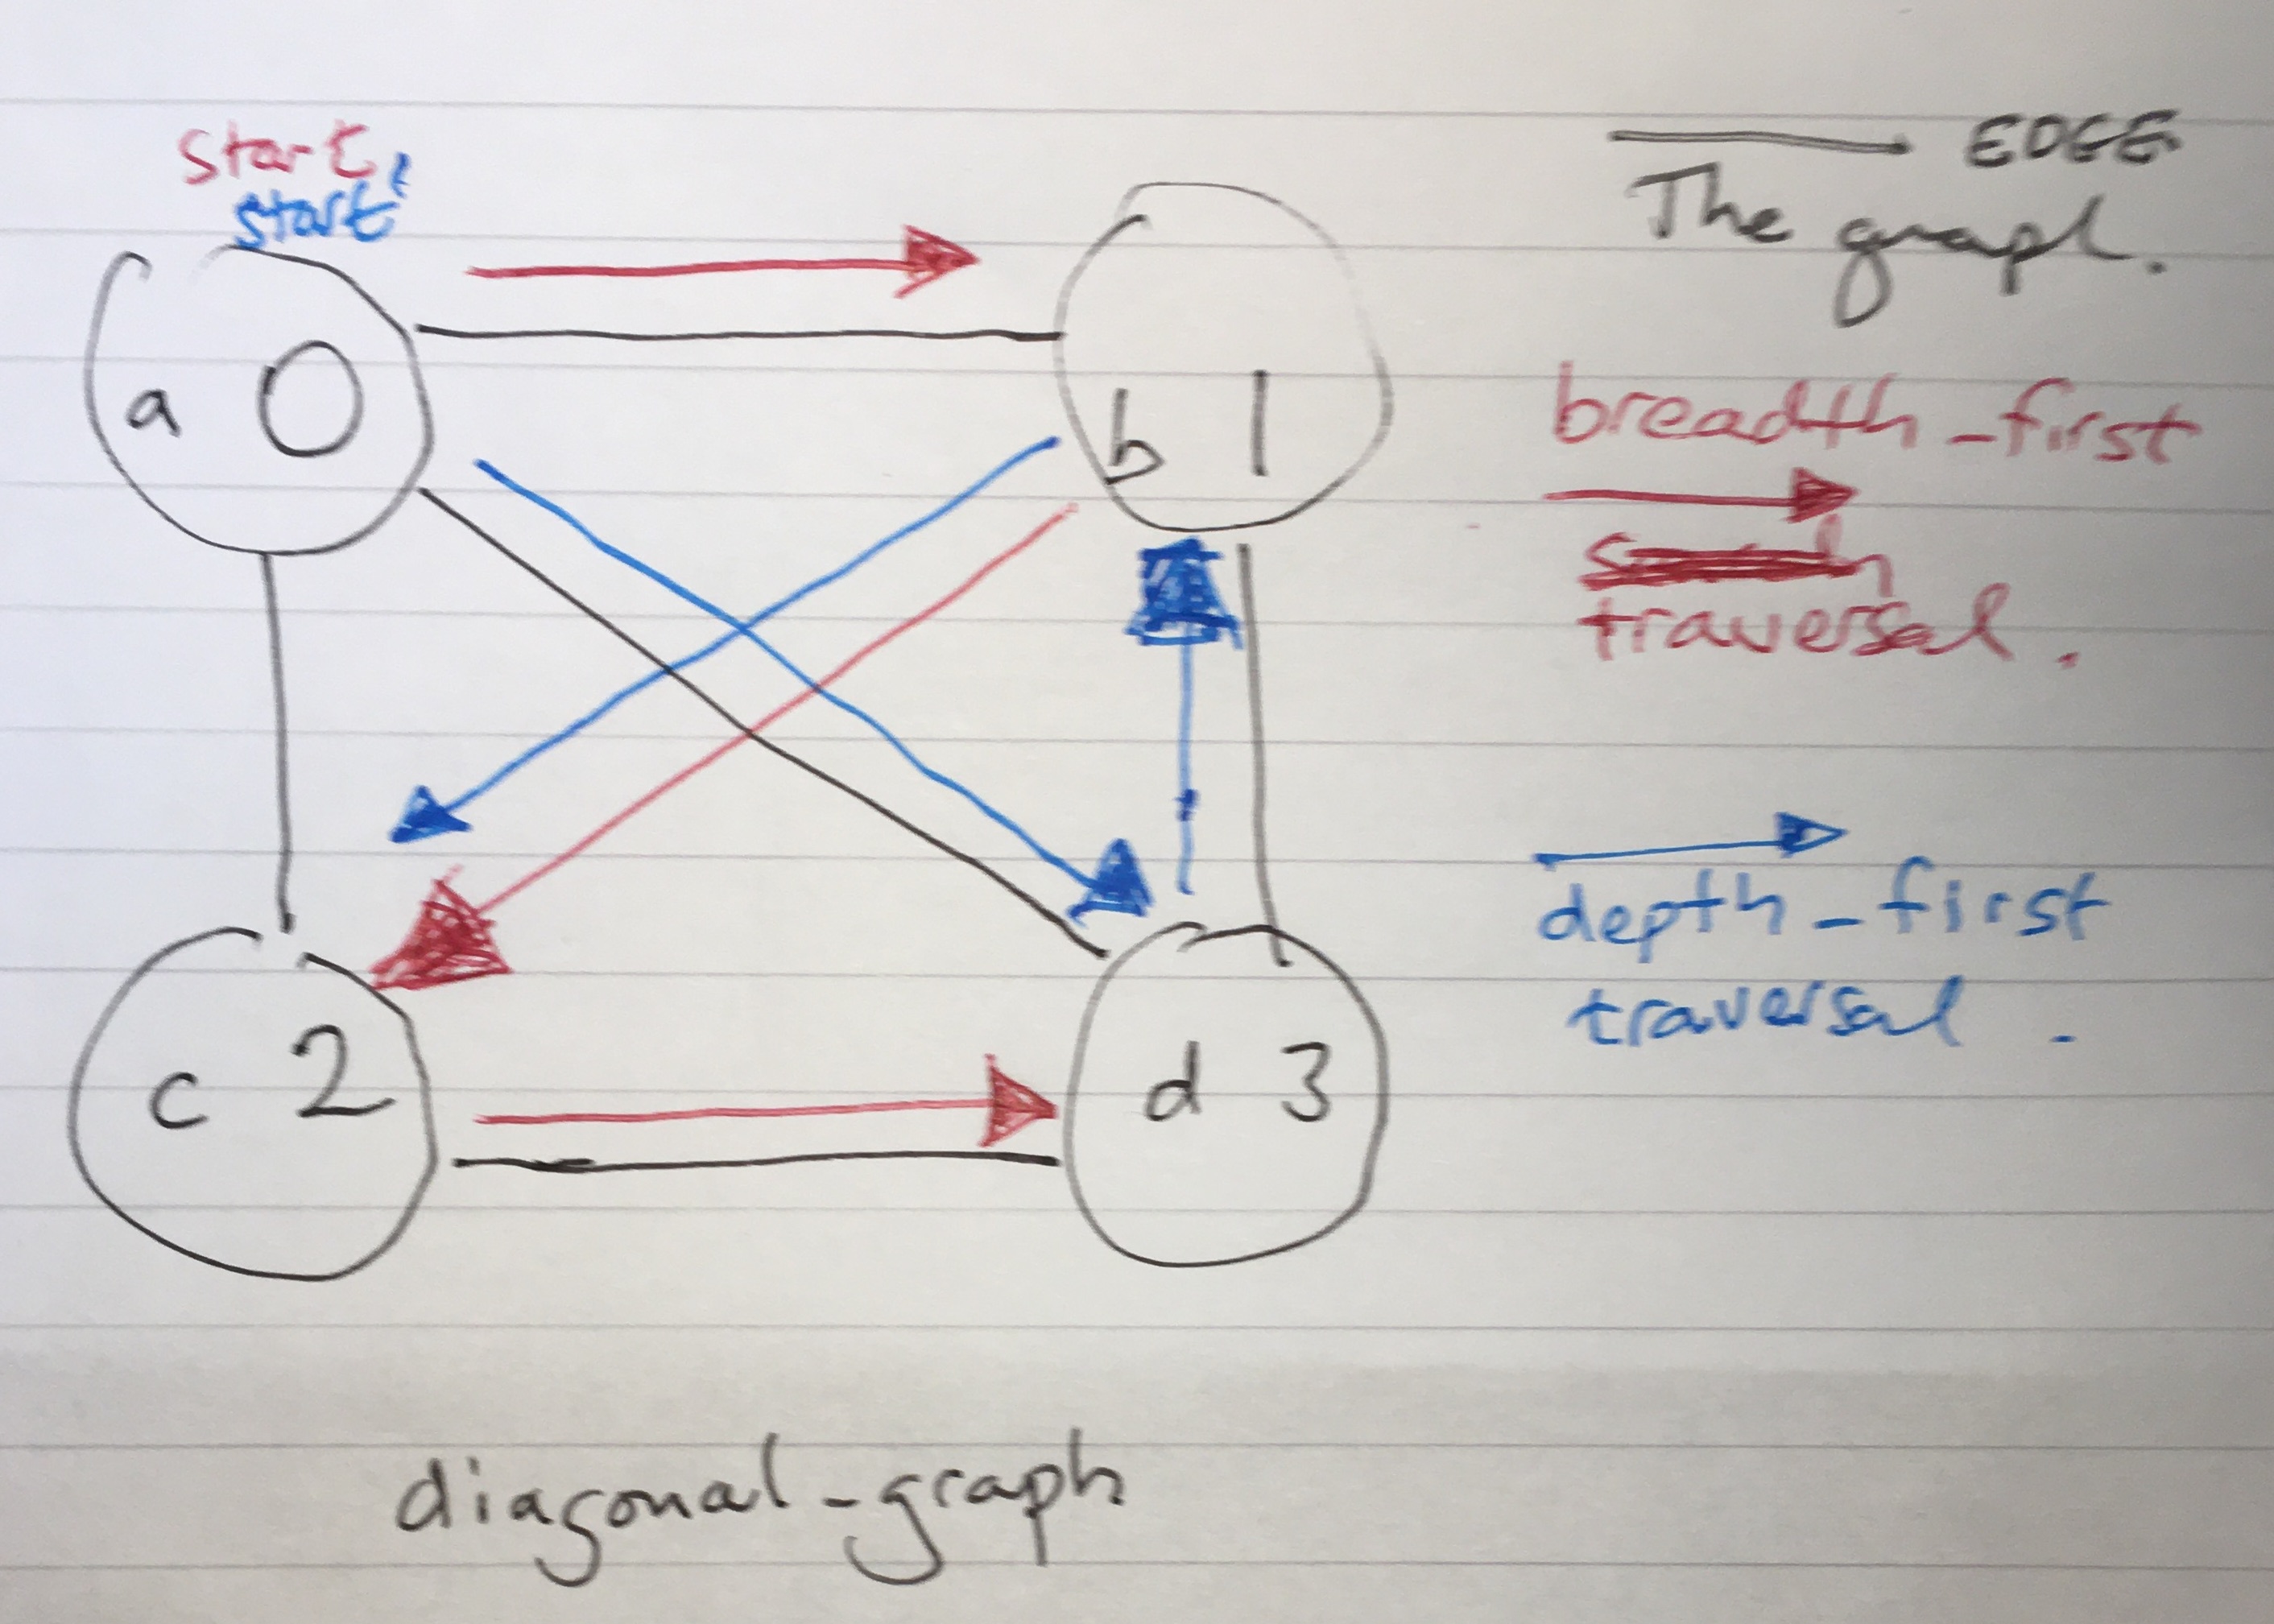 start,
start
EDGE
The graph.
a 0
b 1
breadth-first
traversal.
depth-first
traversal.
c 2
d 3
diagonal-graph